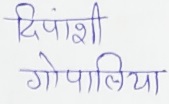 दिपांशी
गोपालिया